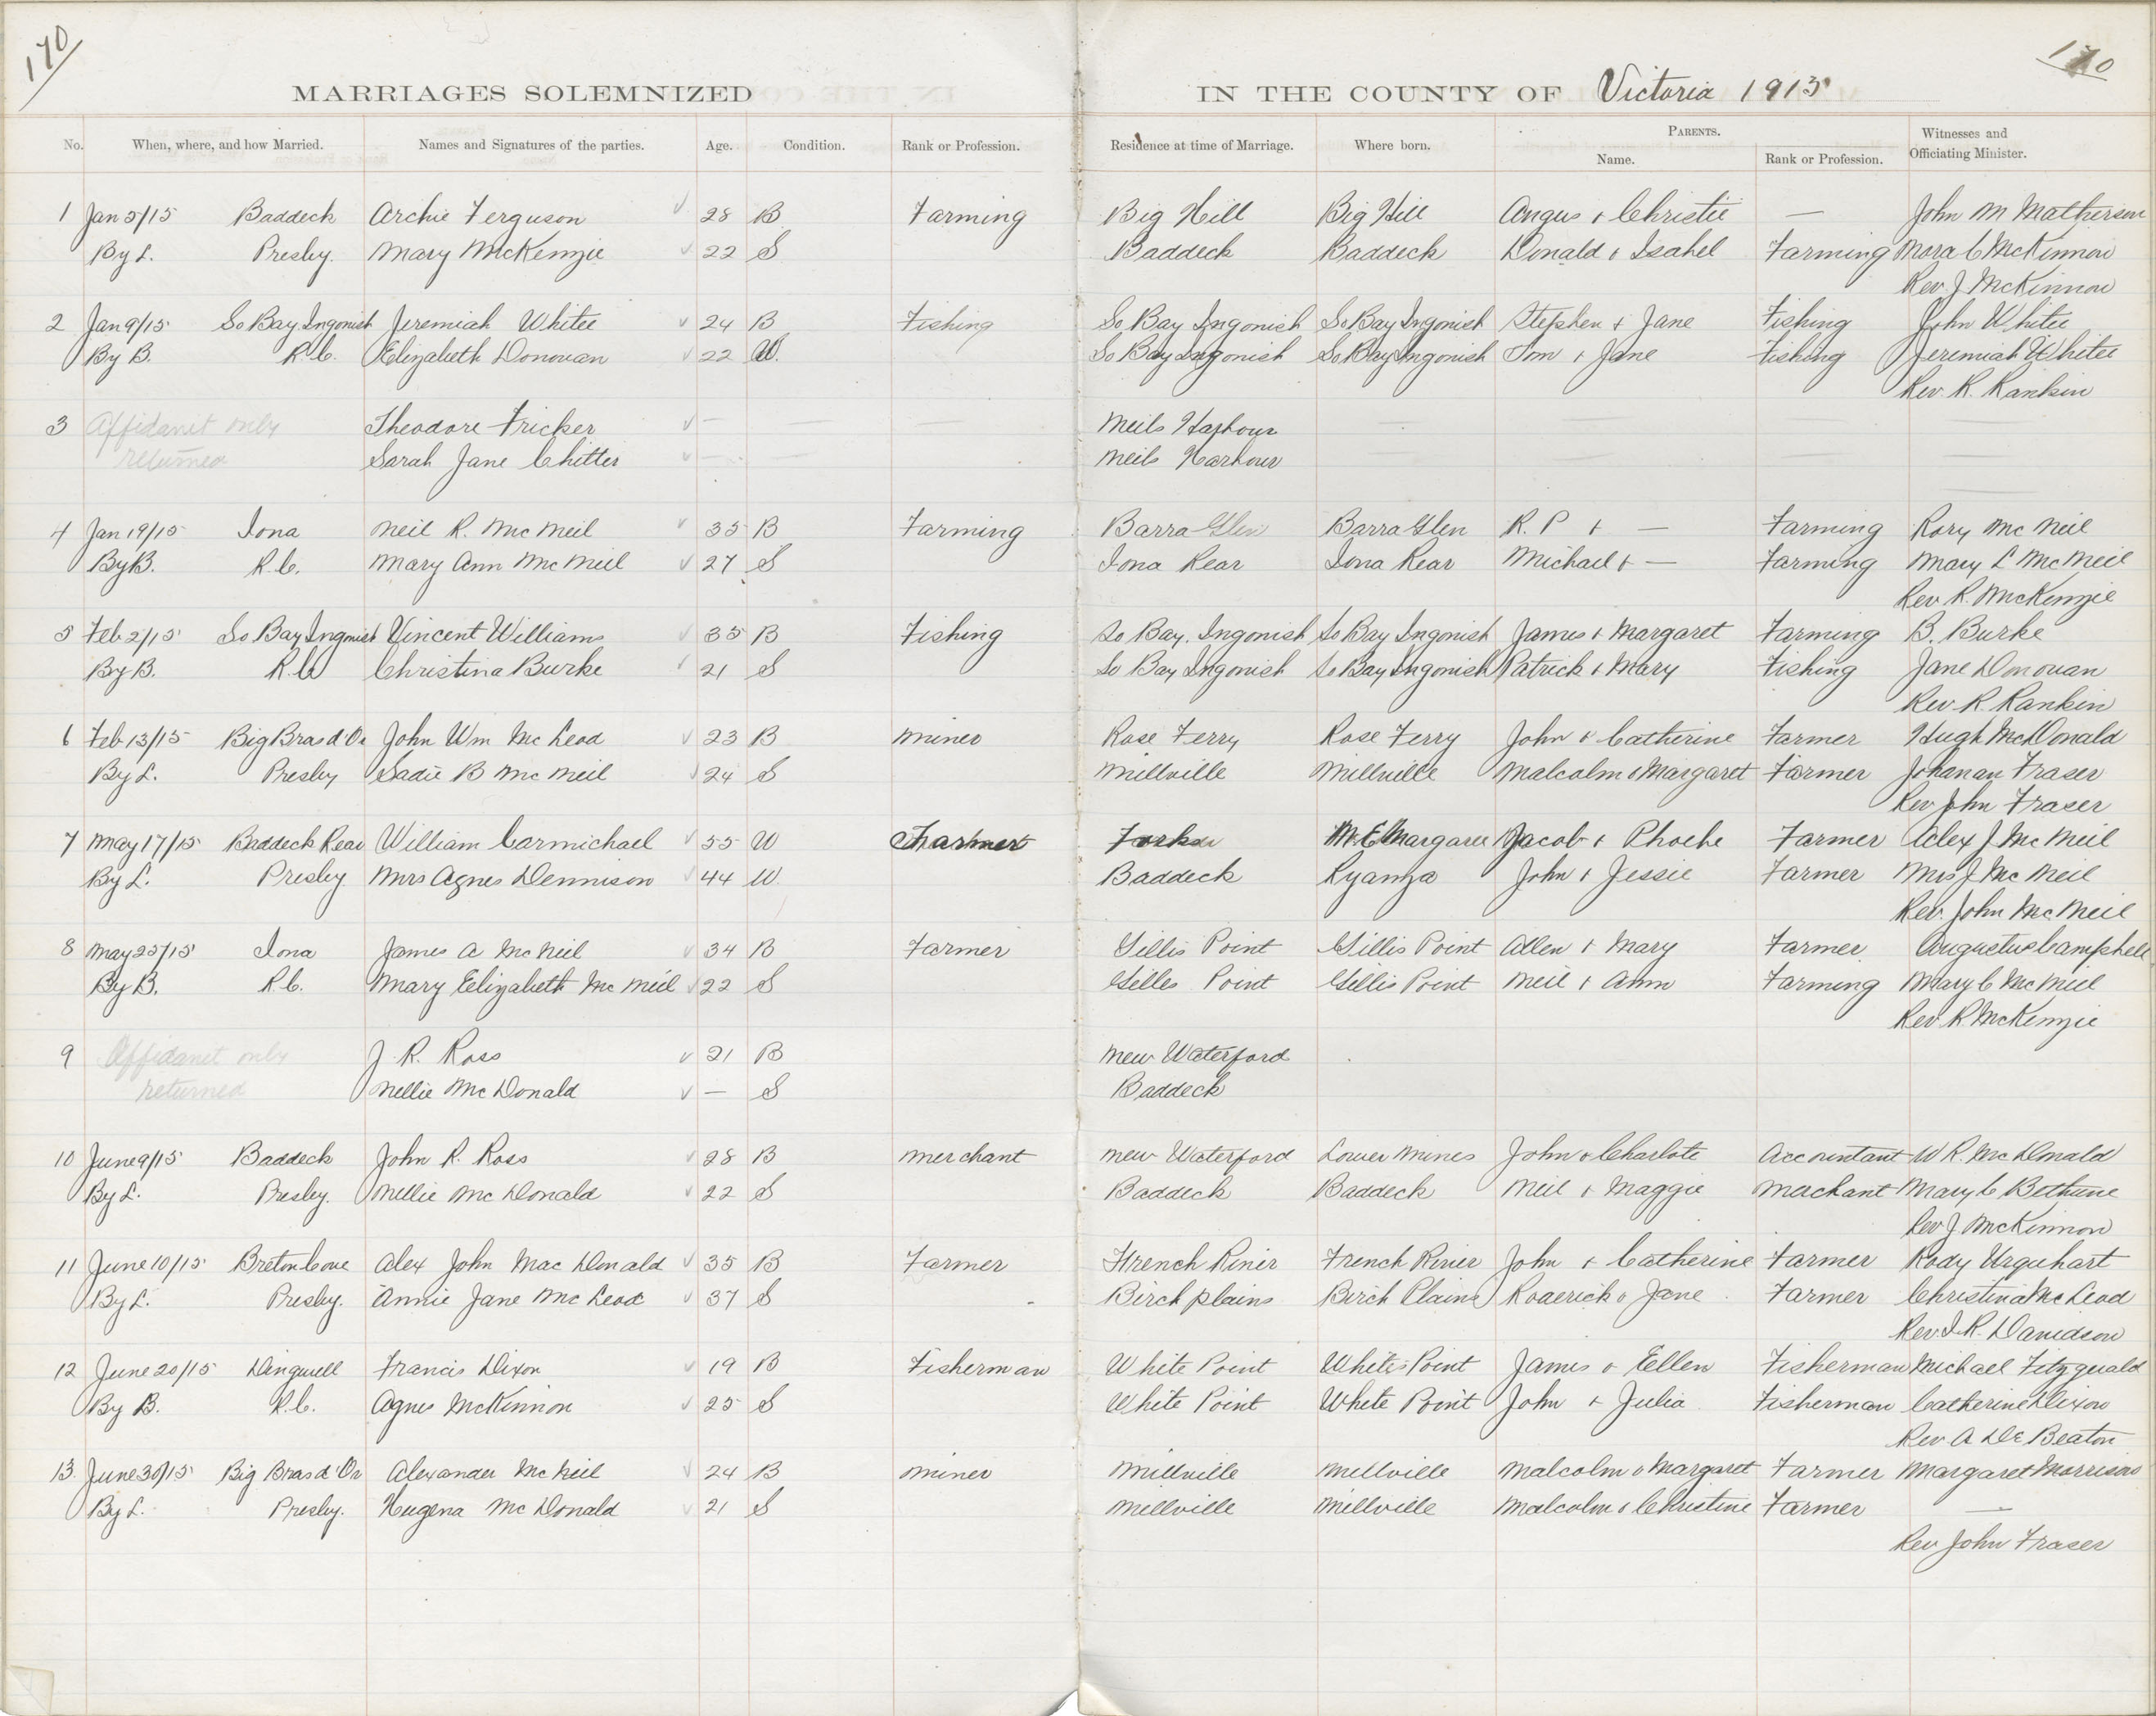 170
170
MARRIAGES SOLEMNIZED IN THE COUNTY OF Victoria 1915
No. When, where, and how Married. Names and Signatures of the parties. Age. Condition. Rank or Profession. Residence at time of Marriage. Where born. PARENTS. Name. Rank or Profession. Witnesses and Officiating Minister.
1 Jan 5/15 Baddeck Archie Ferguson 28 B Farming Big Hill Big Hill Angus & Christie — John M Matherson
By L. Presby. Mary McKenzie 22 S Baddeck Baddeck Donald & Isabel Farming Mora C McKinnon
Rev. J McKinnon
2 Jan 9/15 So Bay Ingonish Jeremiah Whitee 24 B Fishing So Bay Ingonish So Bay Ingonish Stephen & Jane Fishing John Whitee
By B. R.C. Elizabeth Donovan 22 W. So Bay Ingonish So Bay Ingonish Tom & Jane Fishing Jeremiah Whitee
Rev. R. Rankin
3 Affidavit only Theodore Fricker — — — Neils Harbour —
returned Sarah Jane Chitter — — Neils Harbour
4 Jan 19/15 Iona Neil R. McNeil 35 B Farming Barra Glen Barra Glen R. P & — Farming Rory McNeil
By B. R.C. Mary Ann McNeil 27 S Iona Rear Iona Rear Michael & — Farming Mary L McNeil
Rev R. McKenzie
5 Feb 2/15 So Bay Ingonish Vincent Williams 35 B Fishing So Bay. Ingonish So Bay Ingonish James & Margaret Farming B. Burke
By B. R.C Christina Burke 21 S So Bay Ingonish So Bay Ingonish Patrick & Mary Fishing Jane Donovan
Rev. R Rankin
6 Feb 13/15 Big Bras d'Or John Wm McLeod 23 B Miner Rose Ferry Rose Ferry John & Catherine Farmer Hugh McDonald
By L. Presby Sadie B McNeil 24 S Millville Millville Malcolm & Margaret Farmer Johanan Fraser
Rev John Fraser
7 May 17/15 Baddeck Rear William Carmichael 55 W Farmer Forks N.E Margaree Jacob & Phoebe Farmer Alex J McNeil
By L. Presby. Mrs Agnes Dennison 44 W. Baddeck Nyanza John & Jessie Farmer Mrs J McNeil
Rev. John McNeil
8 May 25/15 Iona James A McNeil 34 B Farmer Gillis Point Gillis Point Allen & Mary Farmer Augustus Campbell
By B. R.C. Mary Elizabeth McNeil 22 S Gilles Point Gillis Point Neil & Ann Farming Mary C McNeil
Rev. R McKenzie
9 Affidavit only J. R. Ross 21 B New Waterford
returned Nellie McDonald — S Baddeck
10 June 9/15 Baddeck John R. Ross 28 B Merchant New Waterford Lower Mines John & Charlote Accountant W R. McDonald
By L. Presby. Nellie McDonald 22 S Baddeck Baddeck Neil & Maggie Merchant Mary C Bethune
Rev J McKinnon
11 June 10/15 Breton Cove Alex John MacDonald 35 B Farmer French River French River John & Catherine Farmer Rody Urquhart
By L. Presby. Annie Jane McLeod 37 S Birch plains Birch Plains Roderick & Jane Farmer Christina McLeod
Rev. D. R. Davidson
12 June 20/15 Dingwell Francis Dixon 19 B Fisherman White Point White Point James & Ellen Fisherman Michael Fitzgerald
By B. R.C. Agnes McKinnon 25 S White Point White Point John & Julia Fisherman Catherine Dixon
Rev. A De Beaton
13. June 30/15 Big Bras d'Or Alexander McNeil 24 B Miner Millville Millville Malcolm & Margaret Farmer Margaret Morrison
By L. Presby. Hugena McDonald 21 S Millville Millville Malcolm & Christine Farmer —
Rev John Fraser